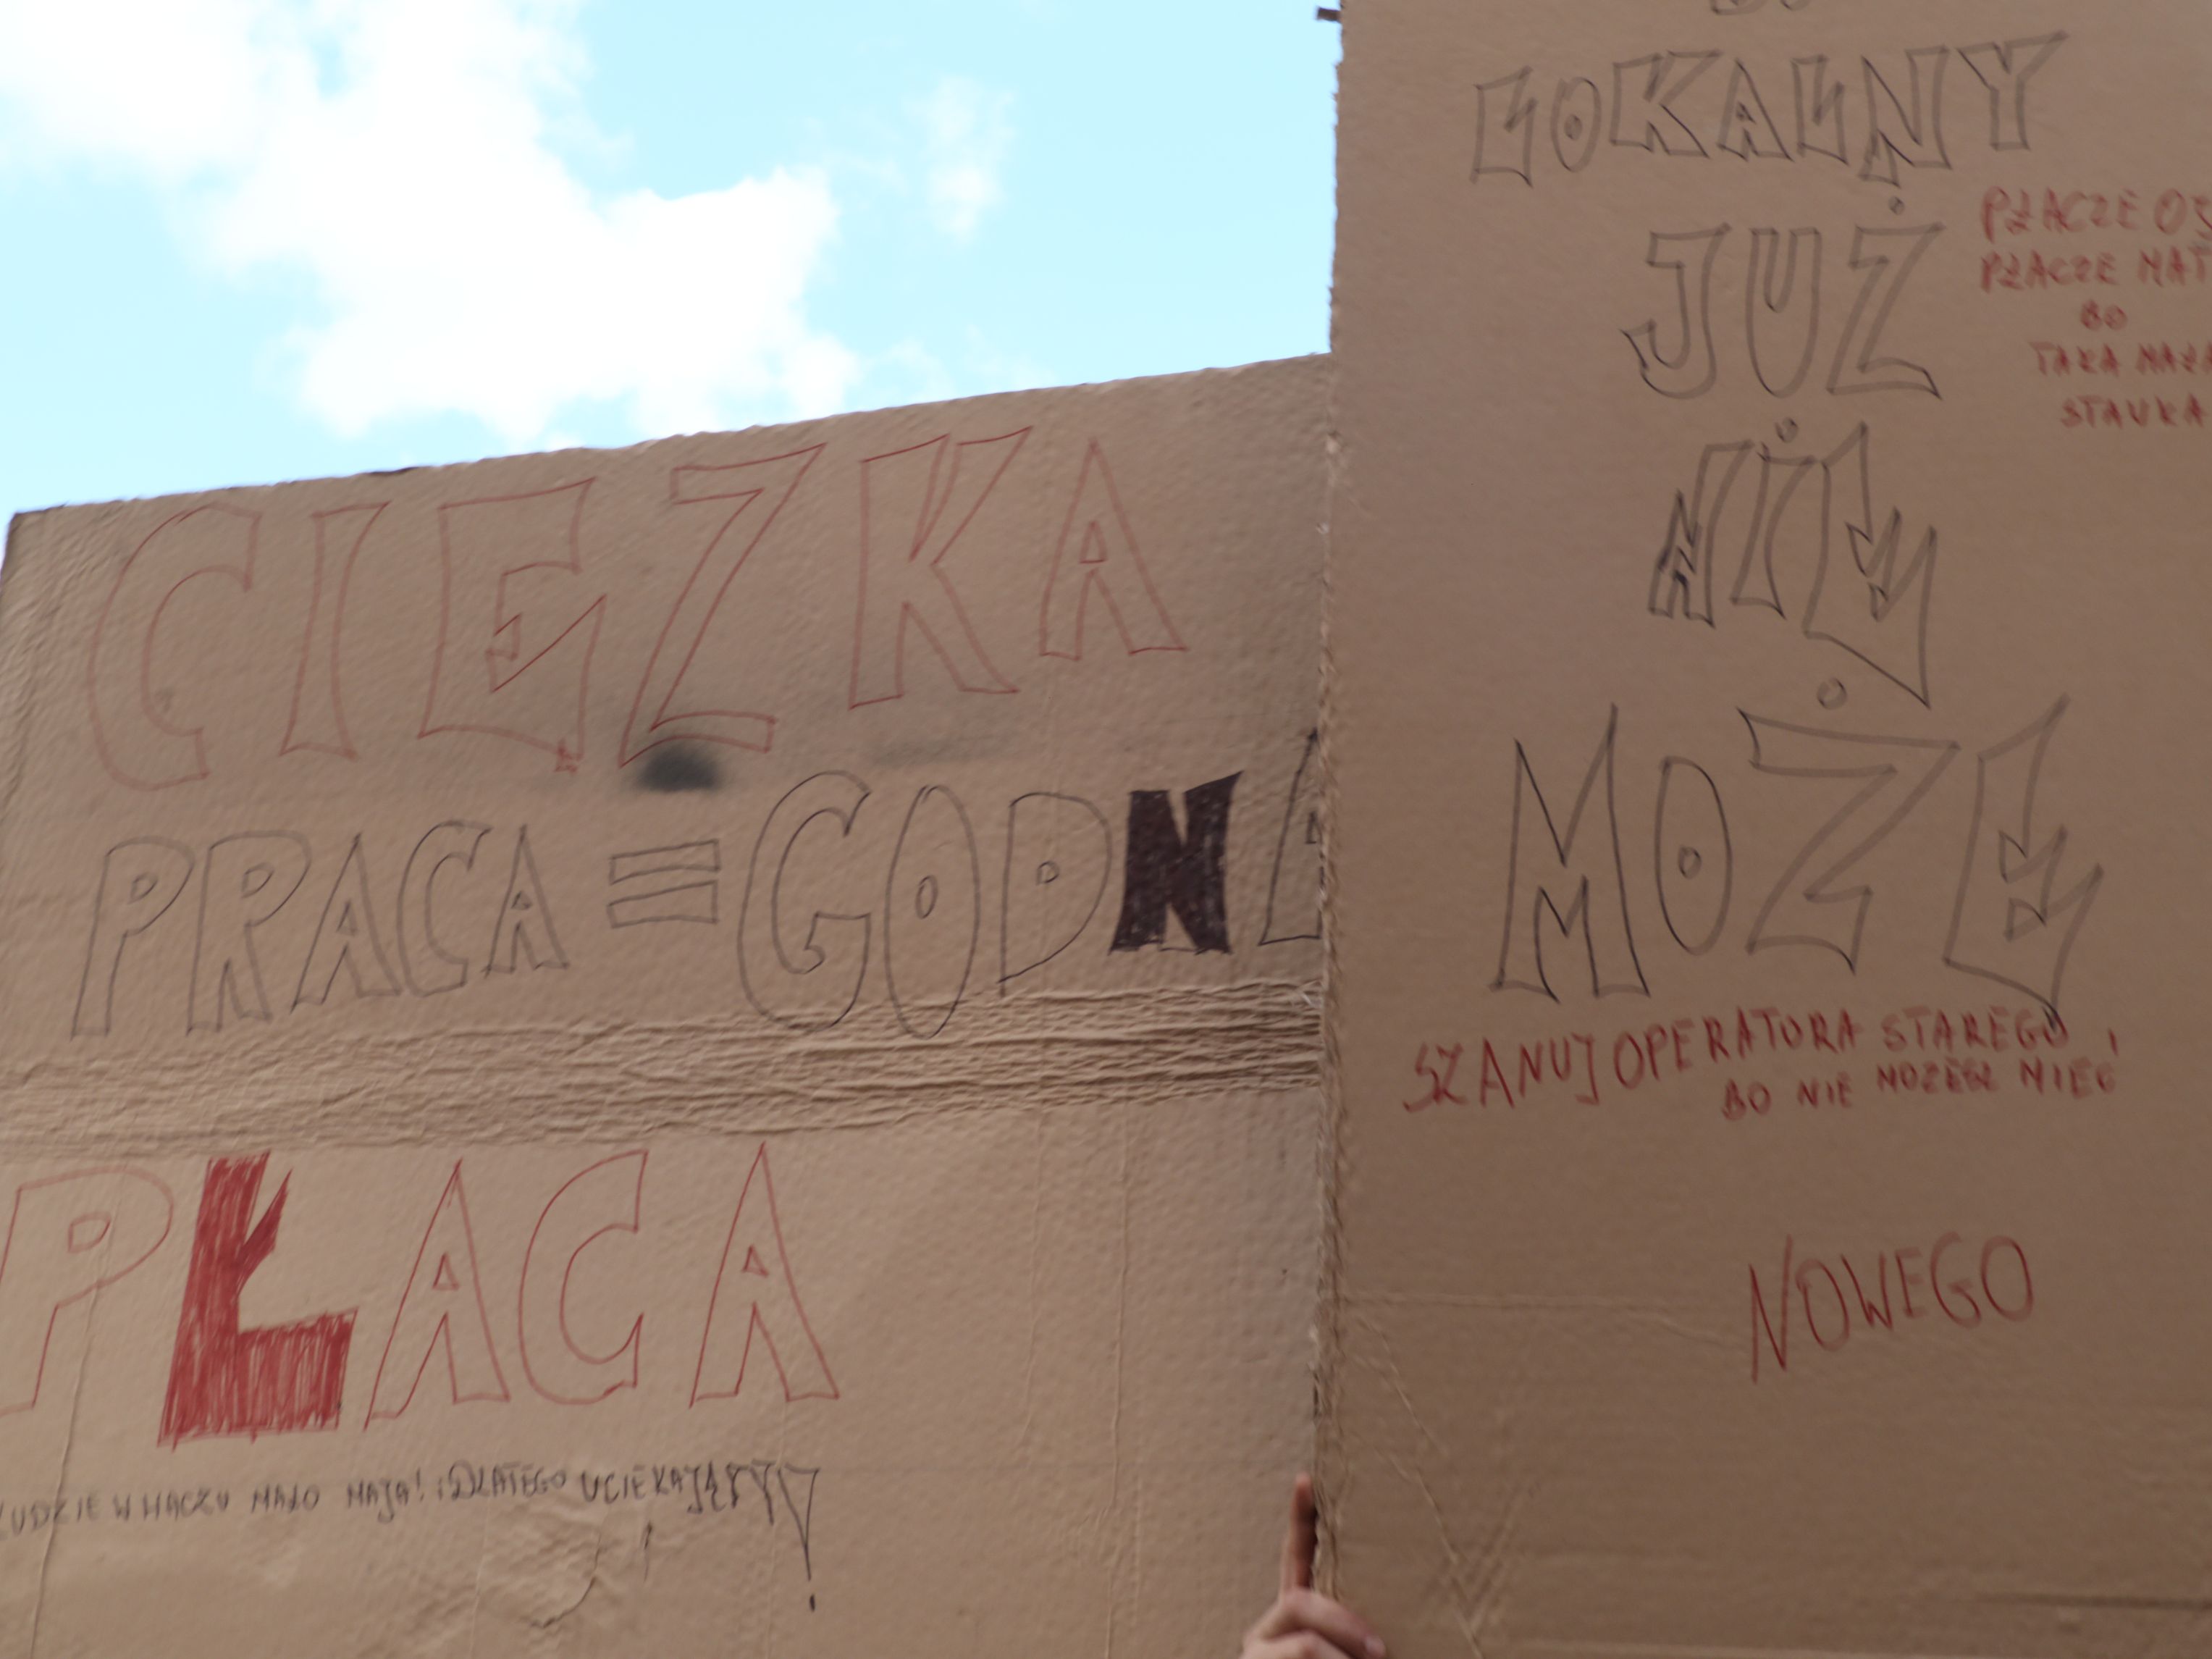 CIĘZKA
PRACA = GODNA
PŁACA
LUDZIE W HACZU MAŁO MAJĄ! i DLATEGO UCIEKAJĄ!!!!
LOKALNY
JUŻ
NIE
MOŻE
PŁACZE
PŁACZE
BO
TAKA
STAVKA
SZANUJ OPERATORA STAREGO,
BO NIE MOŻESZ MIEĆ
NOWEGO